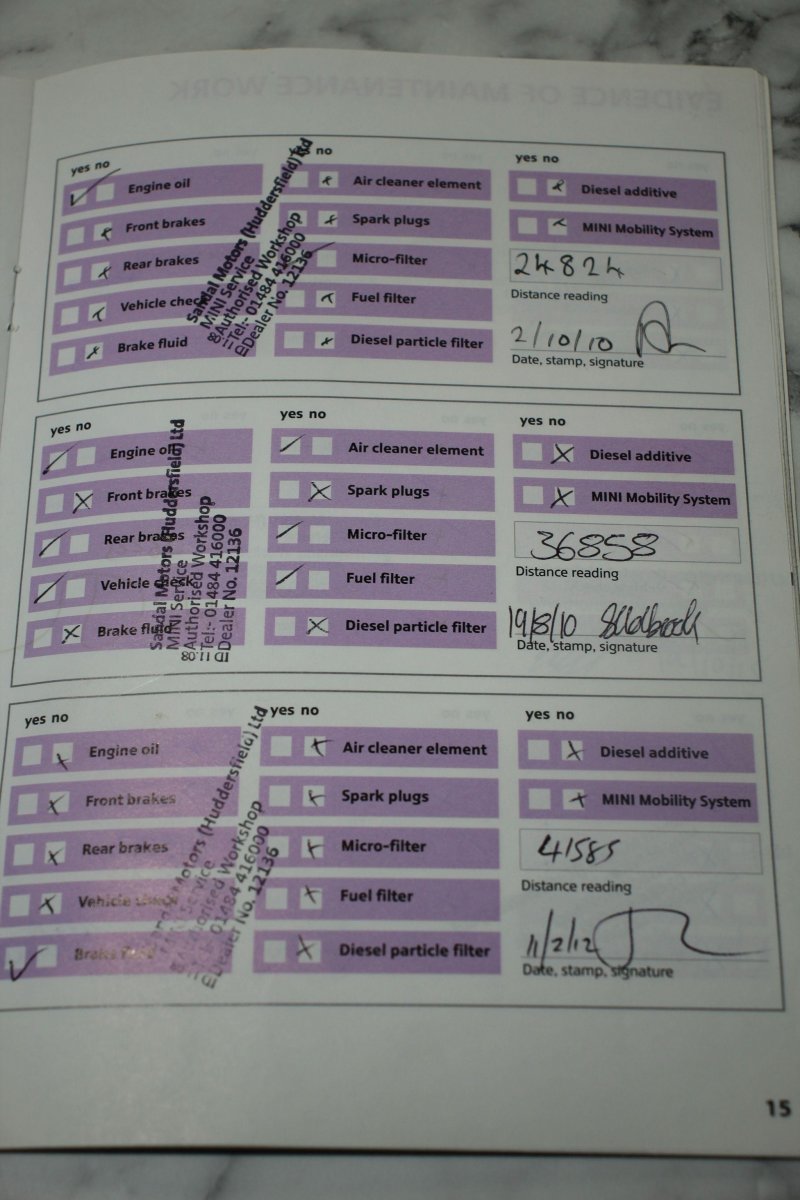 EVIDENCE OF MAINTENANCE WORK
yes no
Engine oil
Front brakes
Rear brakes
Vehicle check
Brake fluid
Sandal Motors (Huddersfield) Ltd
MINI Service
Authorised Workshop
Tel:- 01484 416000
Dealer No. 12136
no
Air cleaner element
Spark plugs
Micro-filter
Fuel filter
Diesel particle filter
yes no
Diesel additive
MINI Mobility System
24824
Distance reading
2/10/10
Date, stamp, signature
yes no
Engine oil
Front brakes
Rear brakes
Vehicle check
Brake fluid
Sandal Motors (Huddersfield) Ltd
MINI Service
Authorised Workshop
Tel:- 01484 416000
Dealer No. 12136
yes no
Air cleaner element
Spark plugs
Micro-filter
Fuel filter
Diesel particle filter
yes no
Diesel additive
MINI Mobility System
36858
Distance reading
19/8/10
Date, stamp, signature
yes no
Engine oil
Front brakes
Rear brakes
Vehicle check
Brake fluid
Motors (Huddersfield) Ltd
Service
Authorised Workshop
01484 416000
Dealer No. 12136
yes no
Air cleaner element
Spark plugs
Micro-filter
Fuel filter
Diesel particle filter
yes no
Diesel additive
MINI Mobility System
41585
Distance reading
11/2/12
Date, stamp, signature
15